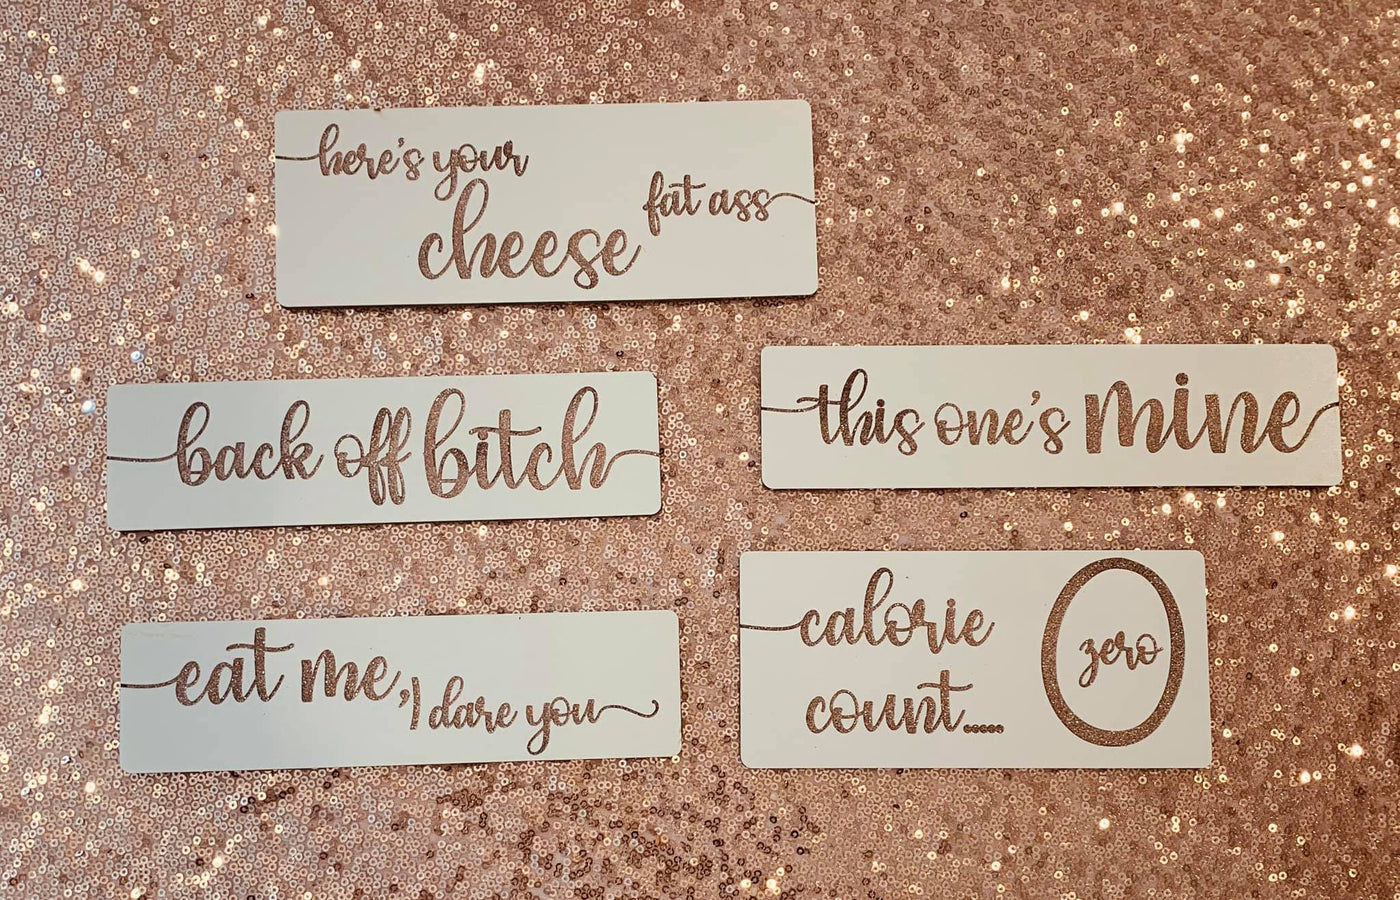 here's your
cheese
fat ass
back off bitch
this one's mine
eat me, I dare you
calorie
count.....
zero